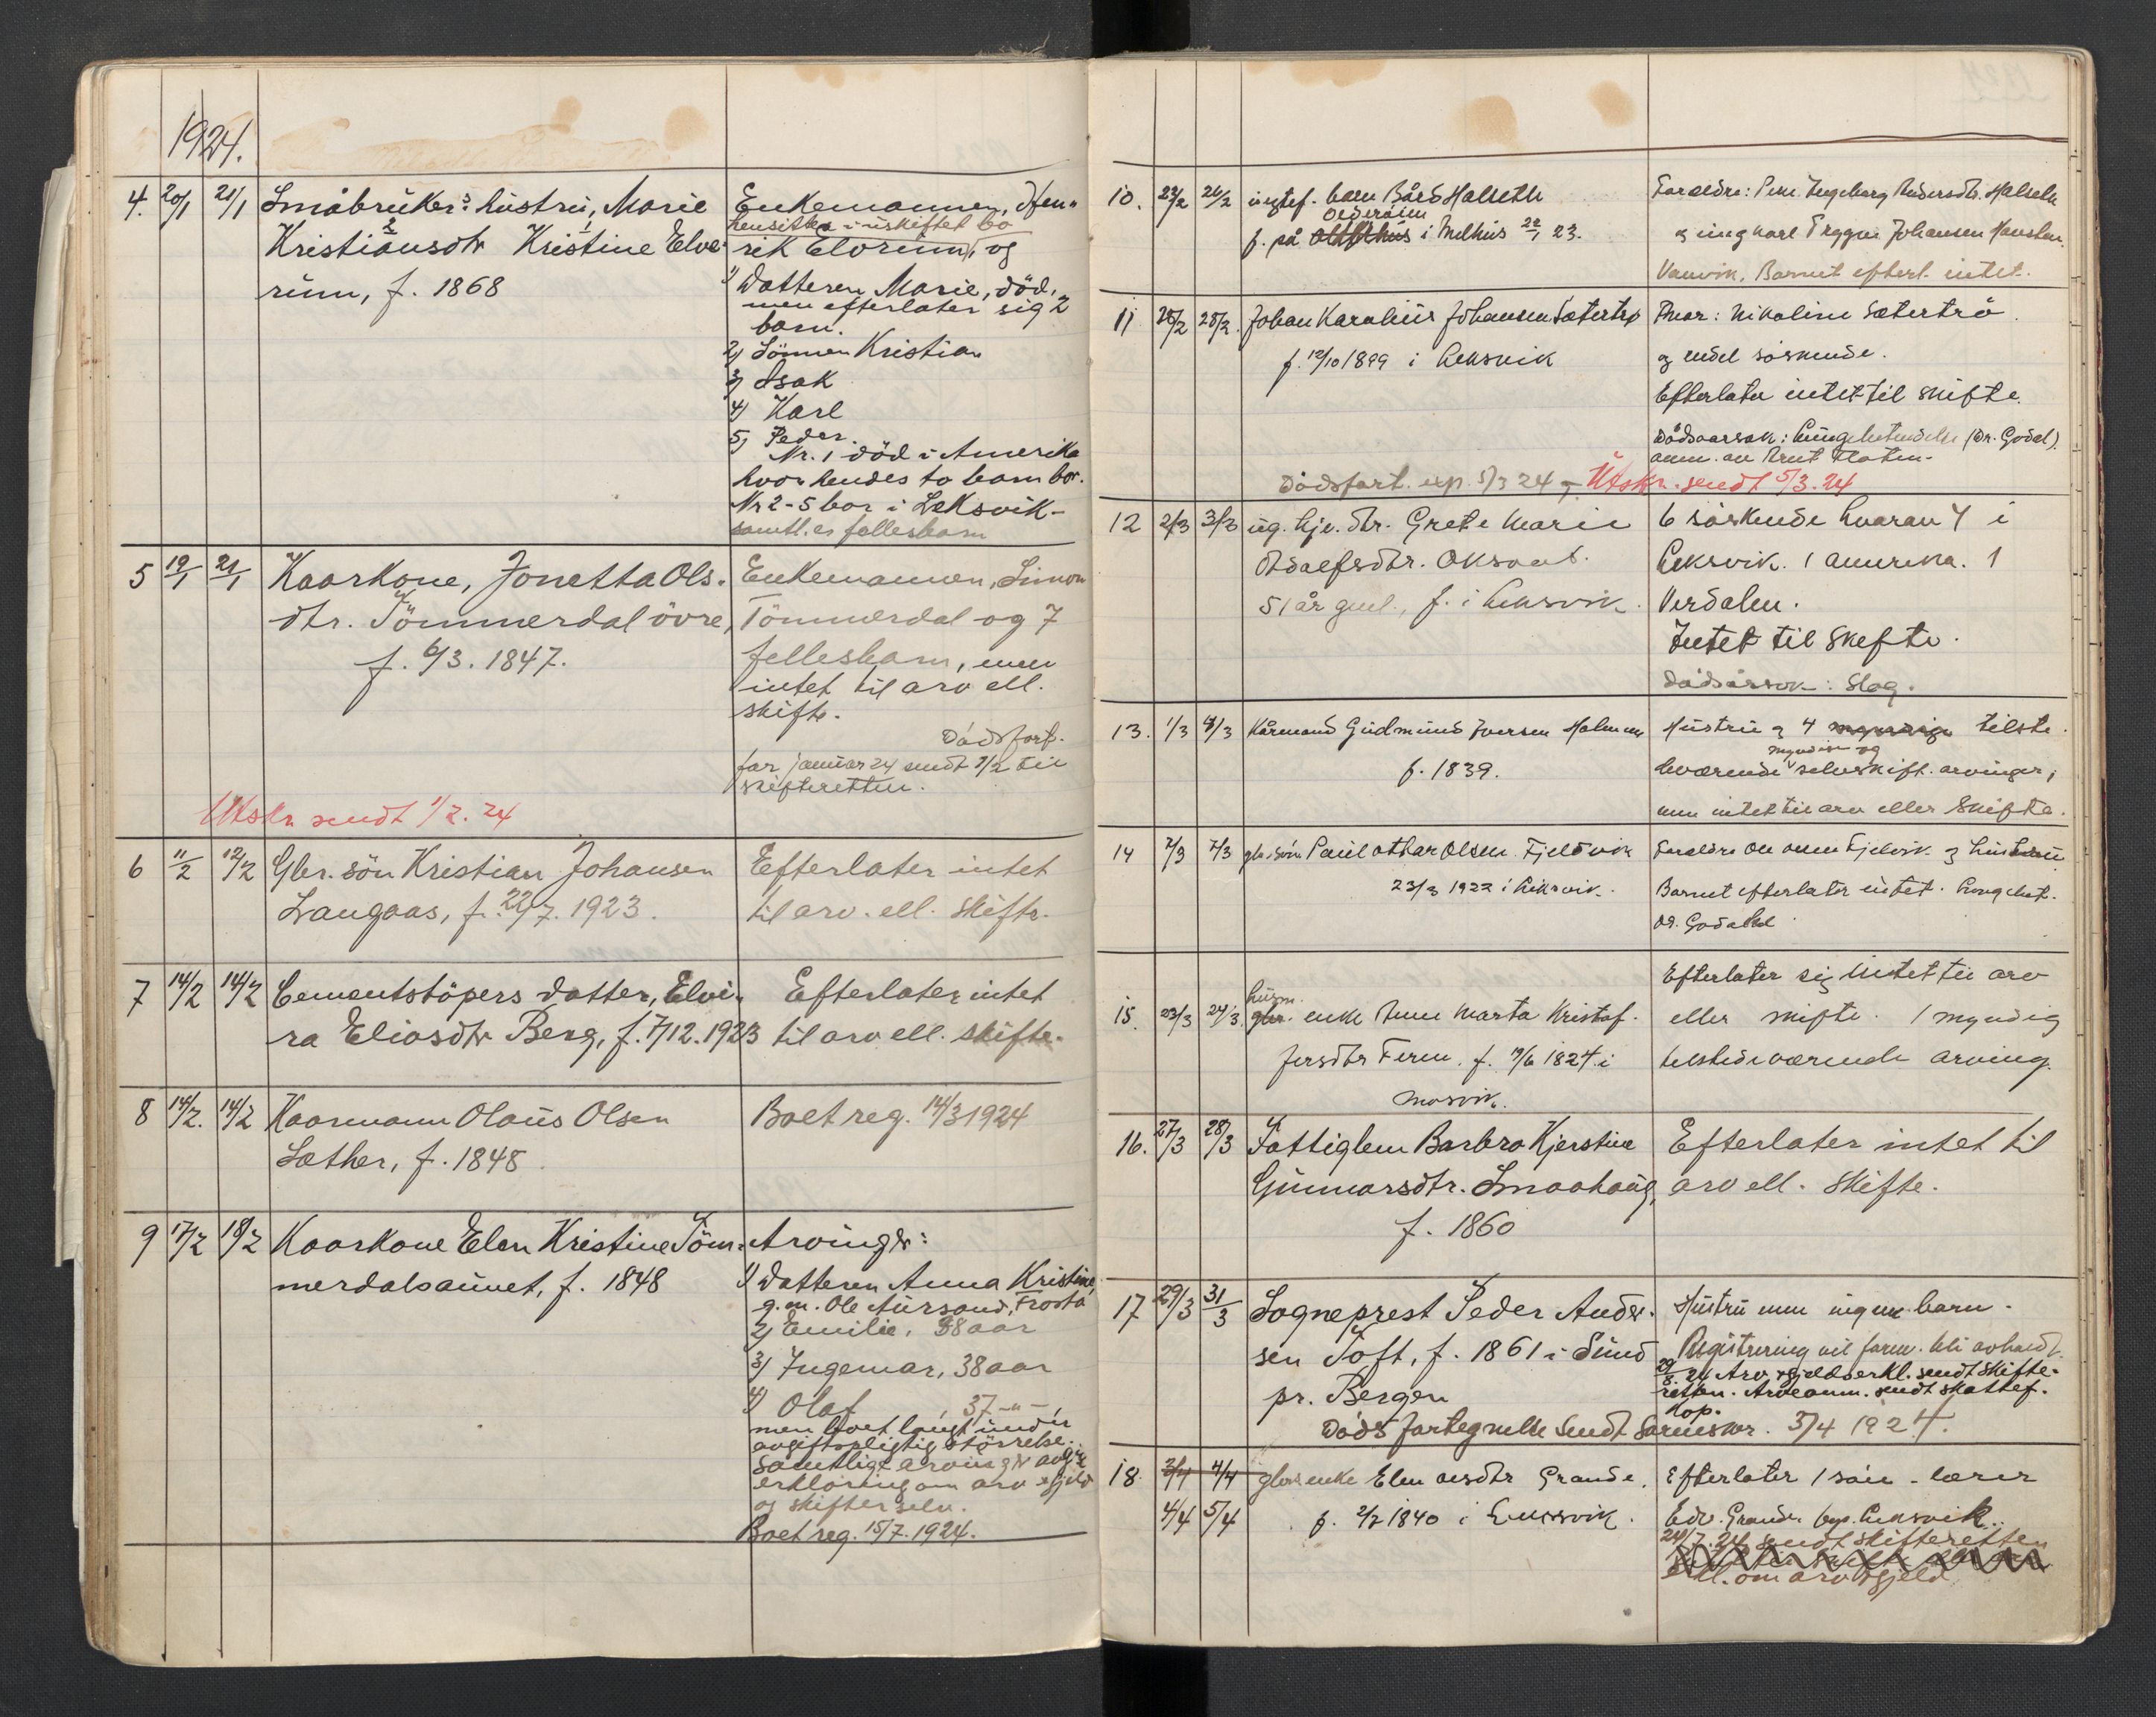 1924.
4. 20/1 21/1 Småbruker: hustru, Marie
Kristiansdtr Kristine Elve-
rum, f. 1868
Enkemannen, Hen-
hensitter i uskiftet bo
rik Elverum, og
1) Datteren Marie, död,
men efterlater sig 2
barn.
2) Sönnen Kristian
3) Isak
4) Karl
5) Peder.
Nr. 1 död i Amerika
hvor hendes to barn bor.
Nr 2-5 bor i Leksvik-
samtl. er fellesbarn
5 19/1 21/1 Kaarkone, Jonetta Ols-
dtr. Tömmerdal övre,
f. 6/3. 1847.
Enkemannen, Simon
Tömmerdal og 7
fellesbarn, men
intet til arv ell.
skifte.
Dödsfort.
for januar 24 sendt 1/2 til
skifteretten.
Utskr. sendt 1/2. 24
6 11/2 12/2 Gbr. sön Kristian Johansen
Langaas, f. 22/7. 1923.
Efterlater intet
til arv. ell. skifte.
7 14/2 14/2 Cementstöpers datter, Elvi-
ra Eliasdtr Berg, f. 7/12. 1923
Efterlater intet
til arv ell. skifte.
8 14/2. 14/2 Kaarmann Olaus Olsen
Læther, f. 1848
Boet reg. 14/3 1924
9 17/2 18/2 Kaarkone Elen Kristine Töm-
merdalsaunet, f. 1848
Arvinger:
1) Datteren Anna Kristine,
g. m. Ole Aursand, Frosta
2) Emilie, 38 aar
3) Ingemar, 38 aar
4) Olaf, 37 -"-
men boet langt under
avgiftspligtig störrelse.
Samtlige arvinger avgir
erklæring om arv & gjeld
og skifter selv.
Boet reg. 15/7. 1924.
10. 23/2 24/2 ugtef. barn Bård Halseth
f. på i Melhus 22/1 23.
Foreldre: Pike Ingeborg Andersdtr. Halseth
og ungkarl Trygve Johansen
Vanvik. Barnet efterl. intet.
11 25/2 25/2. Johan Karolius Johansen Sæterträ
f. 12/10 1899 i Leksvik
Mor: Nikoline Sæterträ
og endel söskende.
Efterlater intet til skifte.
Dödsaarsak: Lungebetendelse (Dr. Godal)
anm. av Knut Floten.
Dödsfort. exp. 5/3 24 - Utskr. sendt 5/3. 24
12 2/3 3/3 ug. hje. dtr. Grete Marie
51 år gml., f. i Leksvik.
6 söskende hvorav 4 i
Leksvik. 1 Amerika. 1
Verdalen.
Intet til skifte.
Dödsårsak: Slag.
13. 1/3 4/3 Kårmand Gudmund Iversen
f. 1839.
Hustru og 4 tilste-
myndige og
deværende selvskift. arvinger,
men intet til arv eller skifte.
14 7/3 7/3 gbr. sön Paul Ottar Olsen Fjeldvik
23/3 1922 i Leksvik.
Foreldre Ole Fjeldvik og hustru
Barnet efterlater intet. Lungebet.
Dr. Godal
15. 23/3 24/3. husm.
gbr. enke Anne Marta Kristof-
fersdtr Ferm. f. 19/6 1824 i
Mosvik.
Efterlater sig intet til arv
eller skifte. 1 myndig
tilstedeværende arving.
16. 27/3 28/3 Fattiglem Barbro Kjerstine
Gunnarsdtr. Smaahaug,
f. 1860
Efterlater intet til
arv ell. skifte.
17 29/3 31/3 Sogneprest Peder Ander-
sen Toft, f. 1861 i Sund
pr. Bergen
Hustru men ingen barn.
Registrering vil form. bli avholdt.
29/8. 24 Arv & gjeldserkl. sendt skifte-
retten. Arveanm. sendt skattef.
Kop.
Dödsfortegnelse sendt Sorenskr. 3/4 1924.
18. 3/4 4/4 gbrs enke Elen Grande.
4/4 5/4 f. 2/2 1840 i Leksvik.
Efterlater 1 sön - lærer
Edv. Grande Leksvik.
24/7. 24 sendt skifteretten
erkl. om arv & gjeld